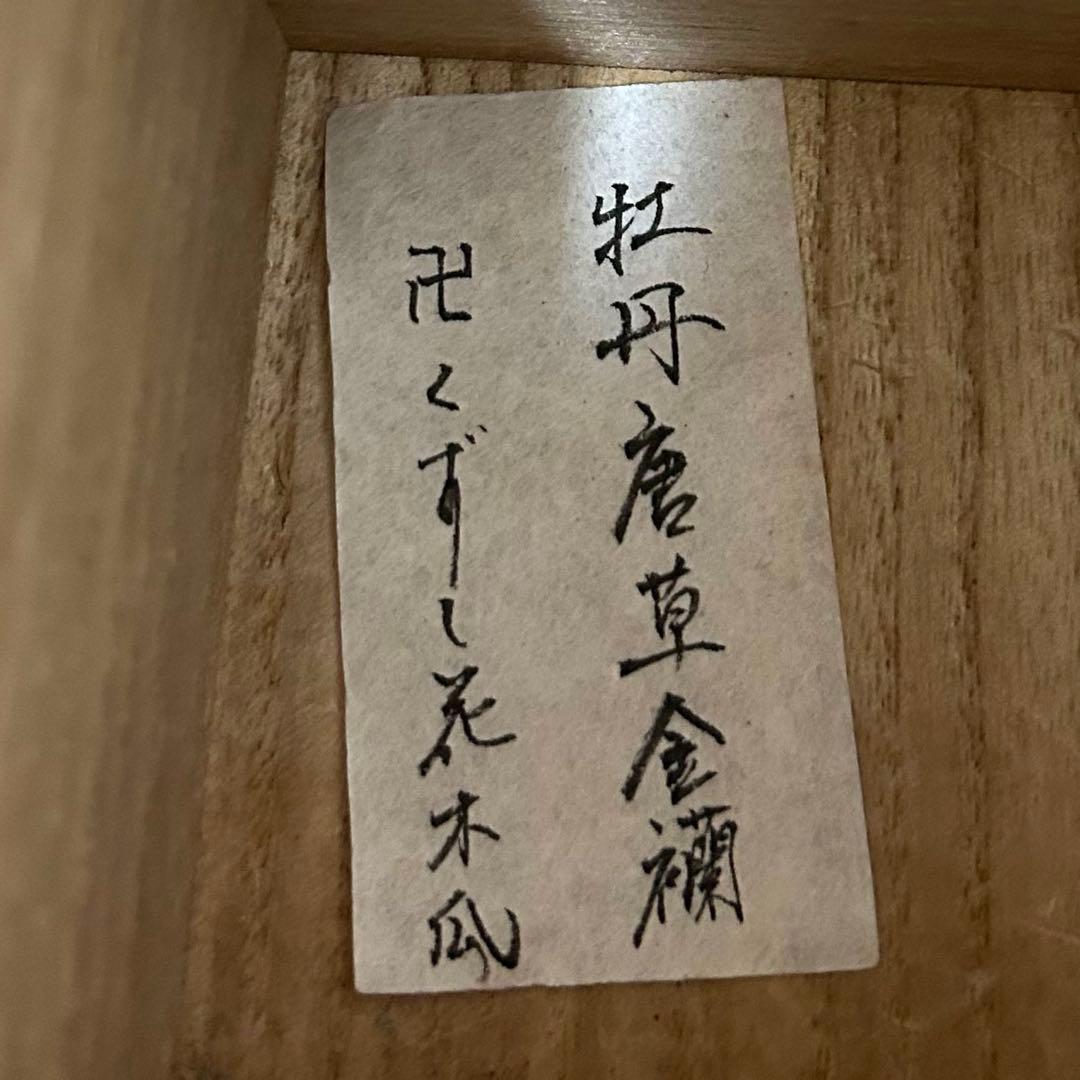 牡丹唐草金襴
卍くずし花木瓜